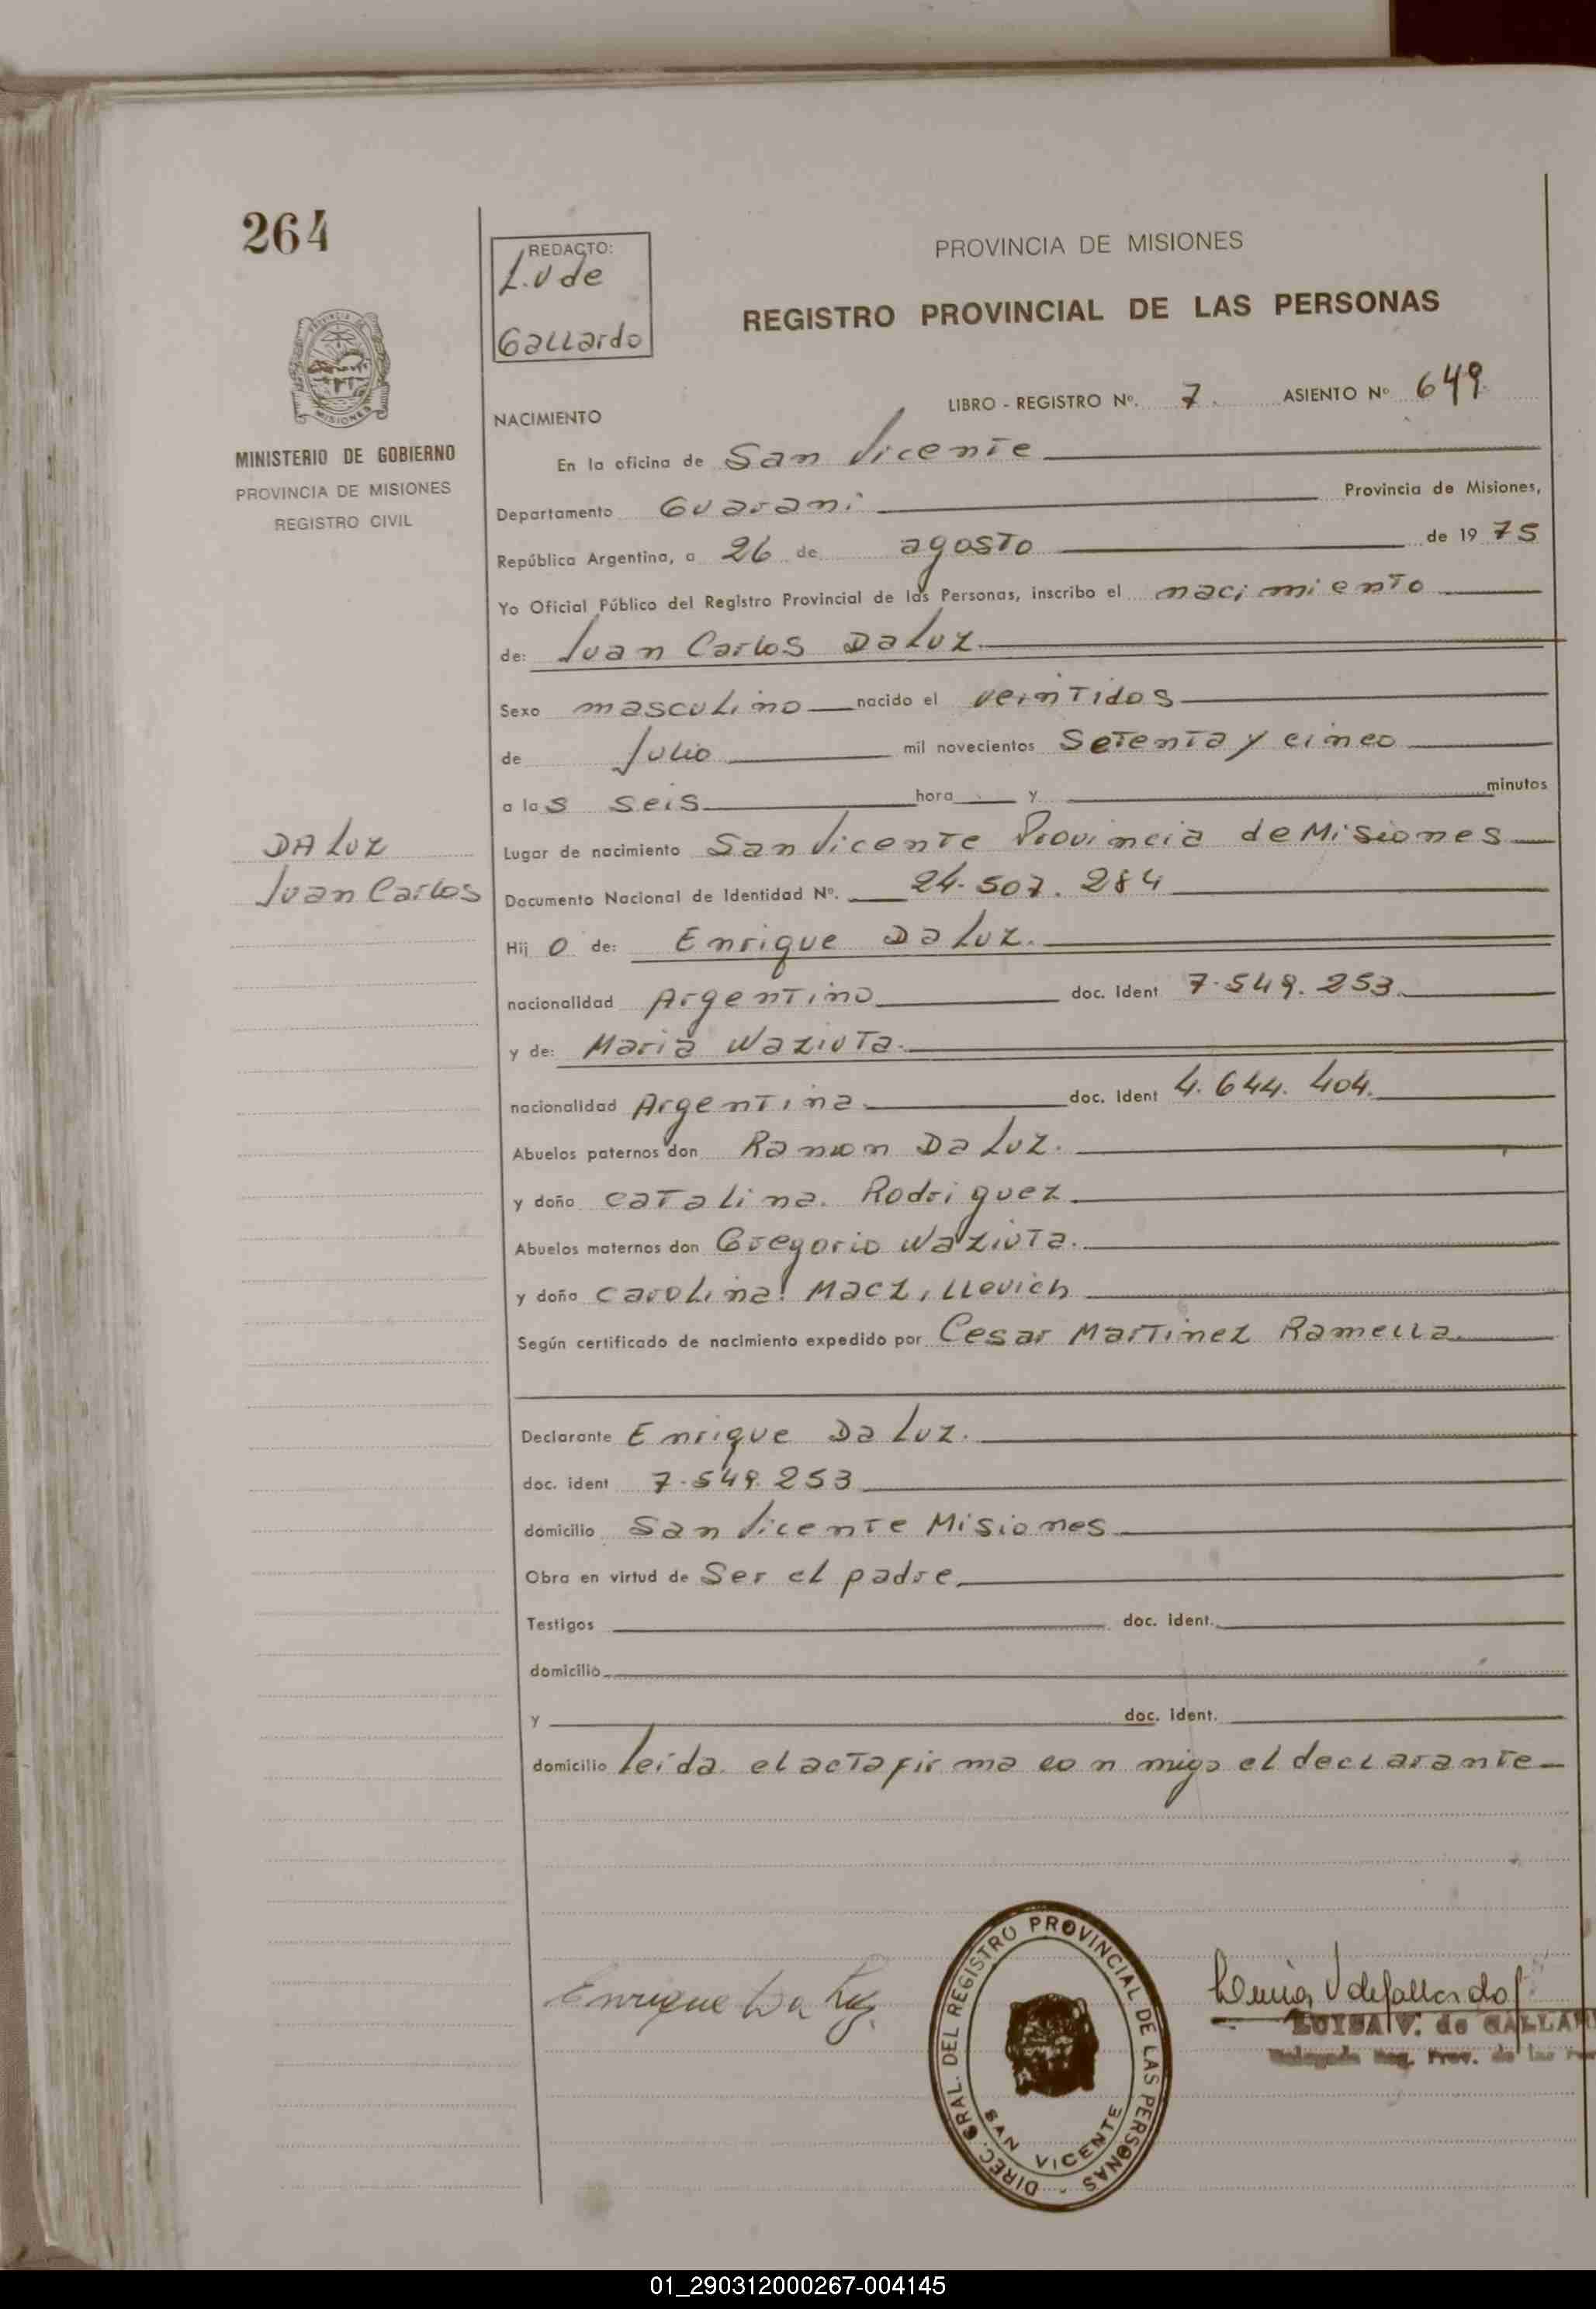 264
REDACTO:
L.V de
Gallardo
PROVINCIA DE MISIONES
REGISTRO PROVINCIAL DE LAS PERSONAS
PROVINCIA DE
MISIONES
MINISTERIO DE GOBIERNO
PROVINCIA DE MISIONES
REGISTRO CIVIL
LIBRO - REGISTRO Nº. 7. ASIENTO Nº 649.
NACIMIENTO
En la oficina de San Vicente
Departamento Guarani Provincia de Misiones,
República Argentina, a 26 de agosto de 1975
Yo Oficial Público del Registro Provincial de las Personas, inscribo el nacimiento
de: Juan Carlos Da Luz.
Sexo masculino nacido el veintidos
de Julio mil novecientos Setenta y cinco
a las seis hora y minutos
DA LUZ
Juan Carlos
Lugar de nacimiento San Vicente Provincia de Misiones
Documento Nacional de Identidad Nº. 24.507.284
Hijo de: Enrique Da Luz.
nacionalidad Argentino doc. Ident 7.549.253.
y de: Maria Waziuta.
nacionalidad Argentina doc. Ident 4.644.404.
Abuelos paternos don Ramon Da Luz.
y doña Catalina Rodriguez
Abuelos maternos don Gregorio Waziuta.
y doña Carolina Maczillevich
Según certificado de nacimiento expedido por Cesar Martinez Ramella.
Declarante Enrique Da Luz.
doc. ident 7.549.253
domicilio San Vicente Misiones
Obra en virtud de Ser el padre
Testigos doc. ident.
domicilio
y doc. ident.
domicilio leída el acta firma conmigo el declarante
Enrique Da Luz
DIREC. GRAL. DEL REGISTRO PROVINCIAL DE LAS PERSONAS -
SAN VICENTE
Luisa V de Gallardo
LUISA V. de GALLAR
Delegada Reg. Prov. de las Per
01_290312000267-004145